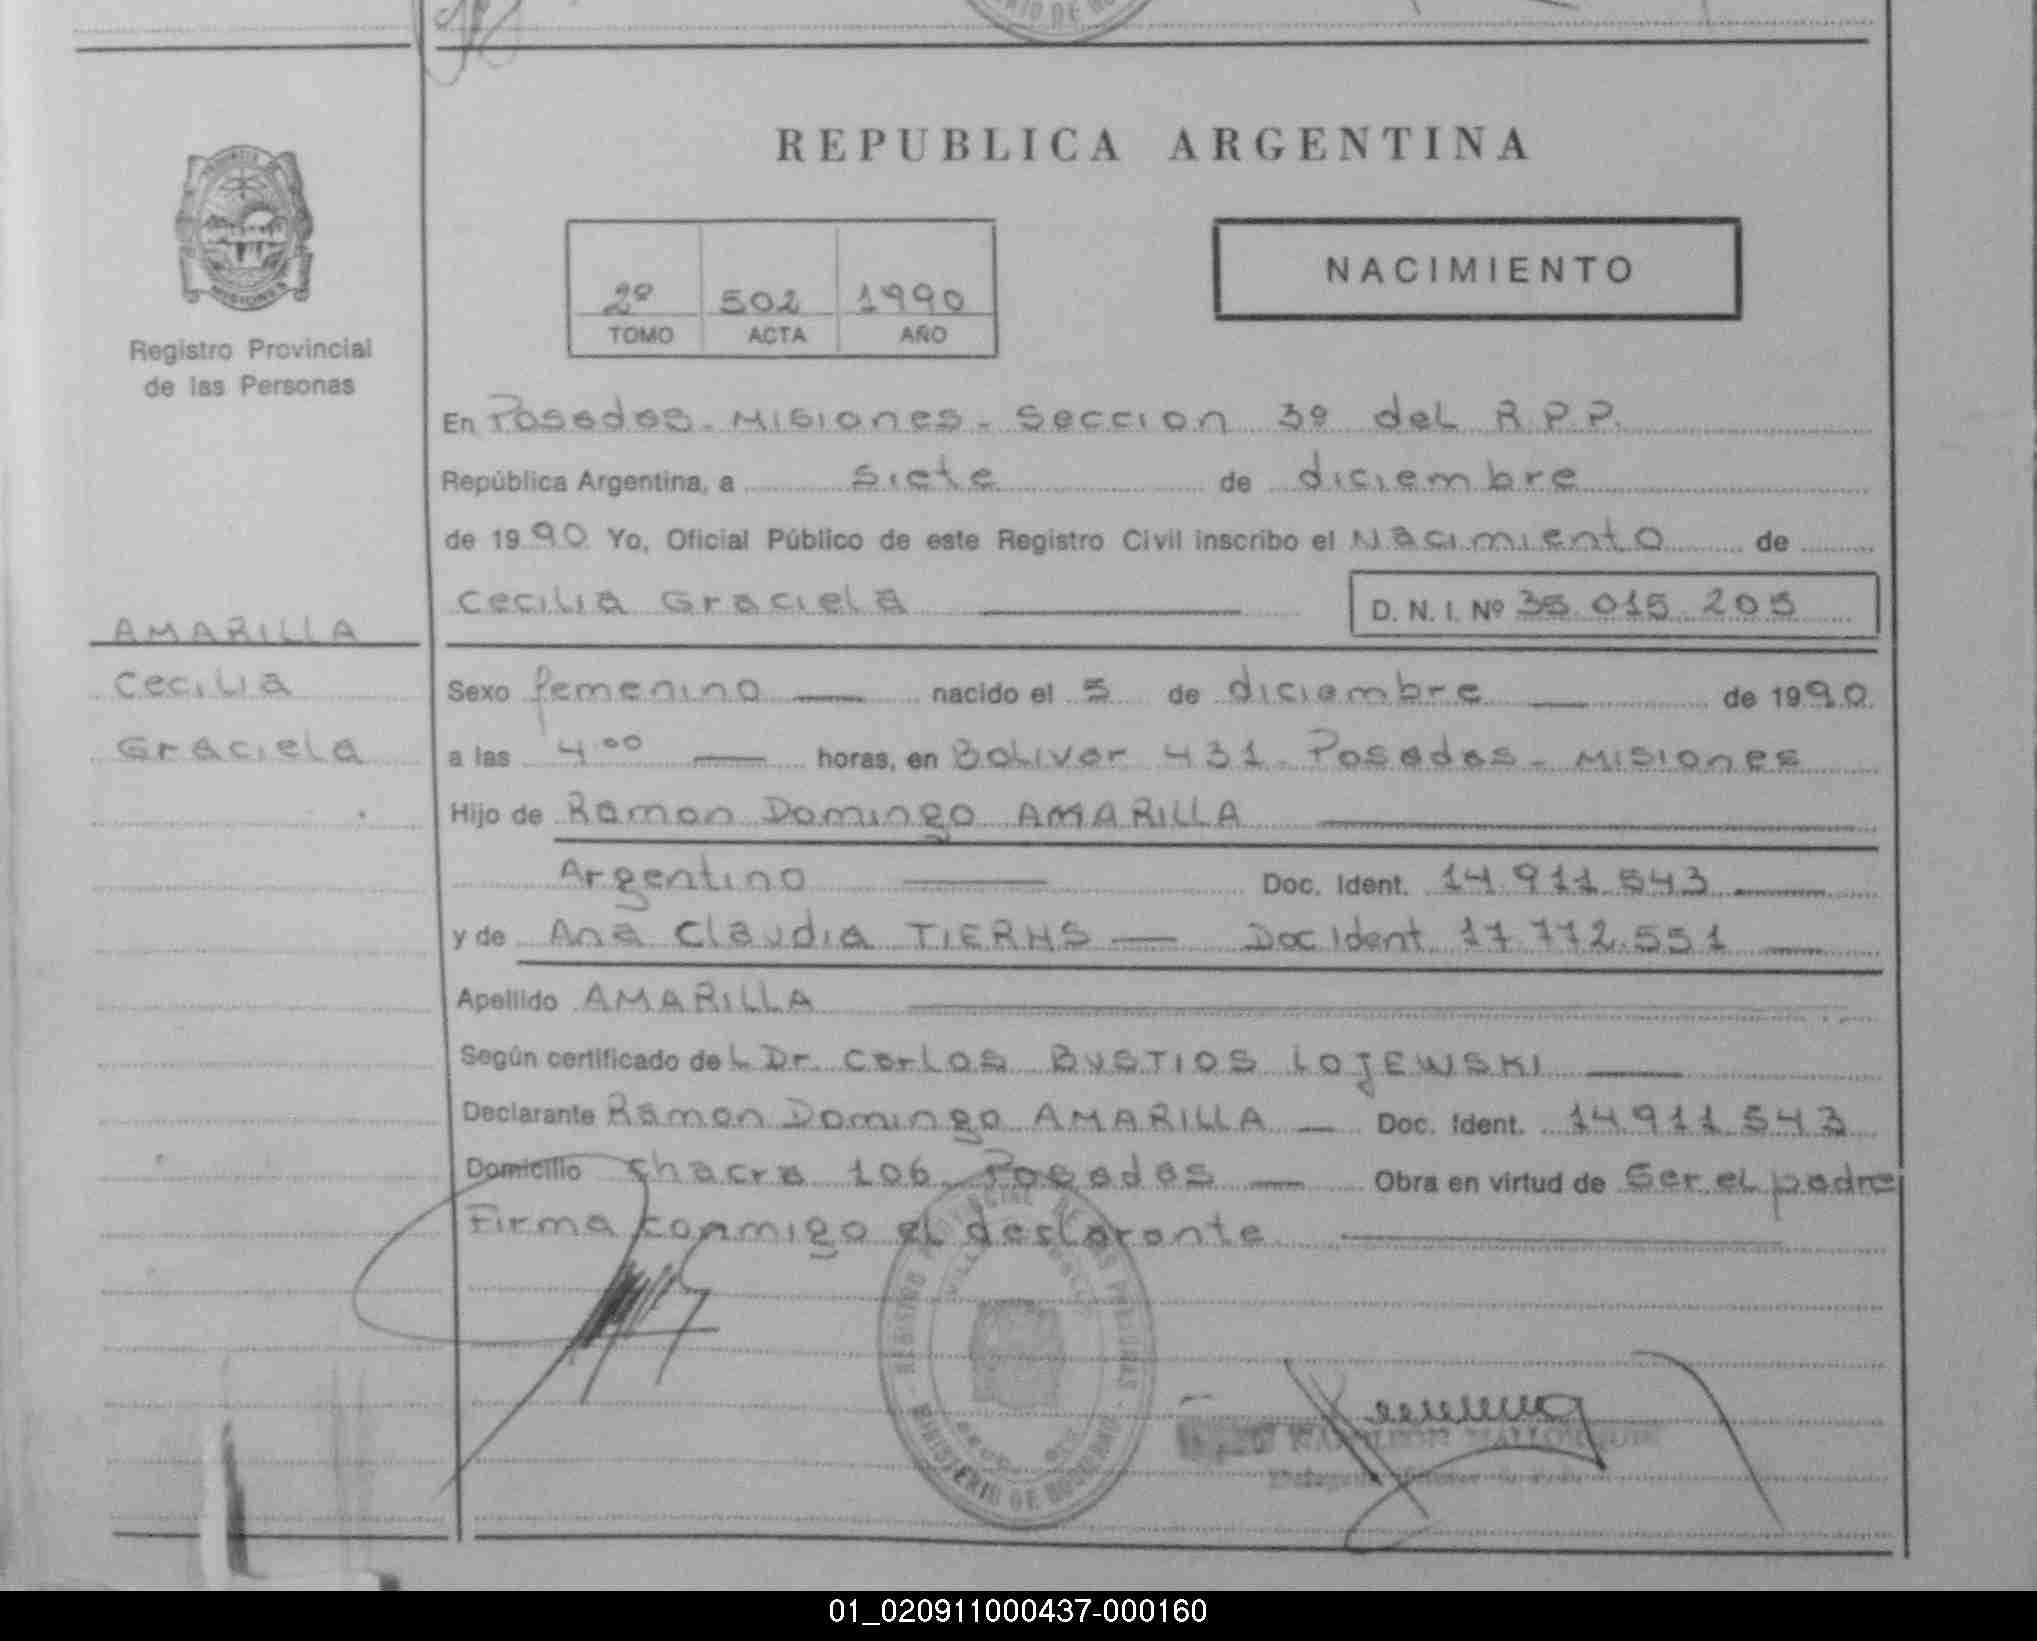 REPUBLICA ARGENTINA
NACIMIENTO
2º 502 1990
TOMO ACTA AÑO
Registro Provincial
de las Personas
En Posadas - Misiones - Seccion 3º del R.P.P.
República Argentina, a siete de diciembre
de 1990 Yo, Oficial Público de este Registro Civil inscribo el Nacimiento de
Cecilia Graciela D. N. I. Nº 35.015.205
AMARILLA
Cecilia
Graciela
Sexo femenino nacido el 5 de diciembre de 1990
a las 4.00 horas, en Bolivar 431 - Posadas - Misiones
Hijo de Ramon Domingo AMARILLA
Argentino Doc. Ident. 14.911.543
y de Ana Claudia TIERHS Doc Ident 17.772.551
Apellido AMARILLA
Según certificado del Dr. Carlos BUSTIOS LOJEWSKI
Declarante Ramon Domingo AMARILLA Doc. Ident. 14.911.543
Domicilio Chacra 106 - Posadas Obra en virtud de ser el padre
Firma conmigo el declarante
REGISTRO PROVINCIAL DE LAS PERSONAS
MINISTERIO DE GOBIERNO
NAPOLEON
01_020911000437-000160